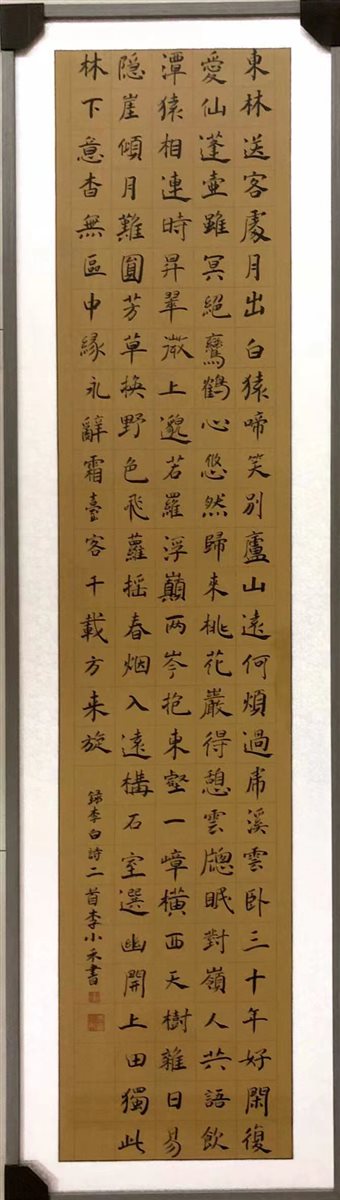 東林送客處月出白猿啼笑別廬山遠何煩過虎溪雲卧三十年好閑復
愛仙蓬壺雖冥絕鸞鶴心悠然歸来桃花巖得憩雲牕眠對嶺人共語飲
潭猿相連時昇翠微上邈若羅浮巔两岑抱東壑一嶂横西天樹雜日易
隐崖傾月難圓芳草換野色飛蘿摇春烟入遠構石室選幽開上田獨此
林下意杳無區中緣永辭霜臺客千載方来旋
錄李白詩二首李小禾書